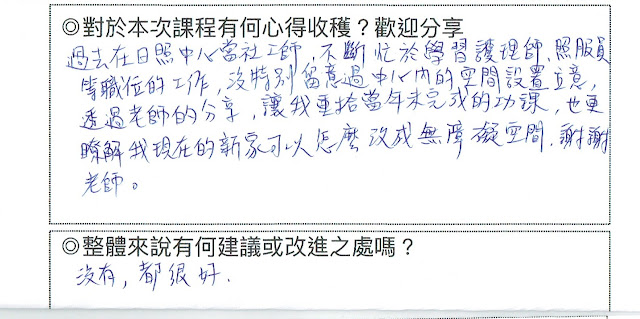 ◎對於本次課程有何心得收穫？歡迎分享
過去在日照中心當社工師，不斷忙於學習護理師、照服員
等職位的工作，沒特別留意過中心內的空間設置立意，
透過老師的分享，讓我重拾當年未完成的功課，也更
瞭解我現在的新家可以怎麼改成無障礙空間，謝謝
老師。
◎整體來說有何建議或改進之處嗎？
沒有，都很好．